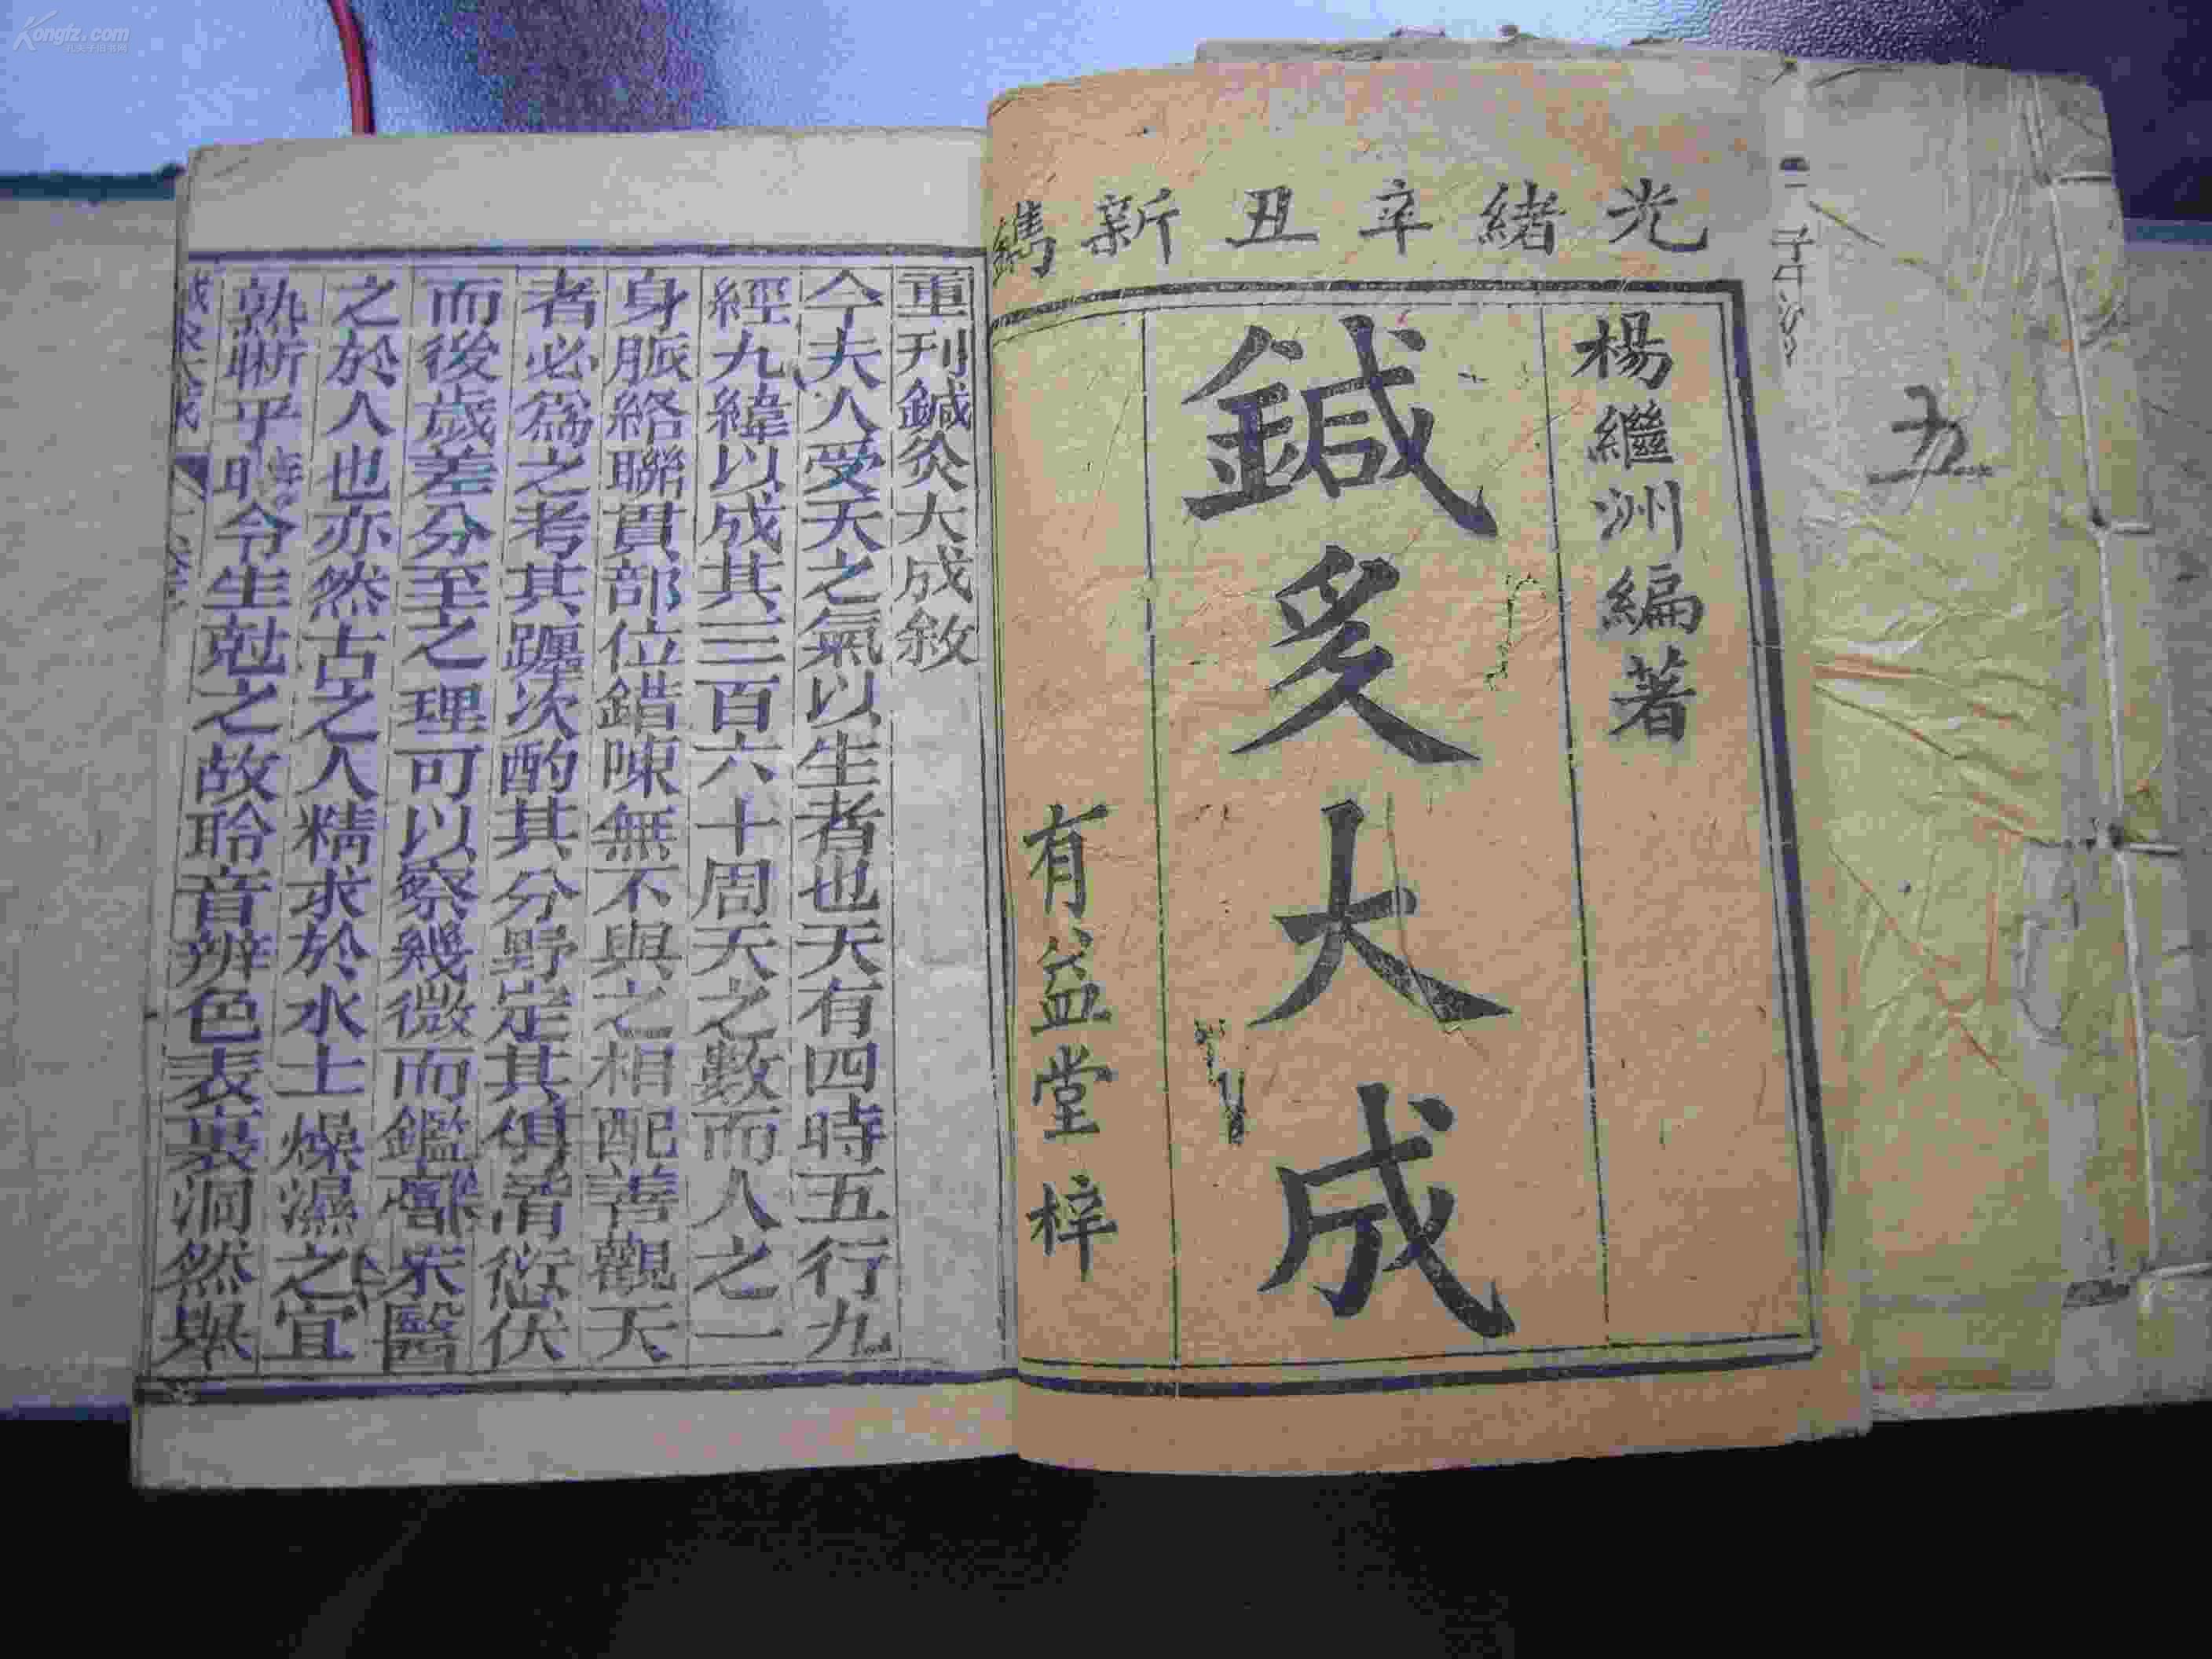 Kongfz.com
孔夫子旧书网
光緒辛丑新鐫
楊繼洲編著
鍼灸大成
有益堂梓
五
重刊鍼灸大成敘
今夫人受天之氣以生者也天有四時五行九
經九緯以成其三百六十周天之數而人之一
身脈絡聯貫部位錯陳無不與之相配善觀天
者必為之考其躔次酌其分野定其俱消愆伏
而後歲差分至之理可以察幾微而鑑
之於人也亦然古之人精求於水土燥濕之宜
熟晰乎時令生尅之故聆音辨色表裏洞然與